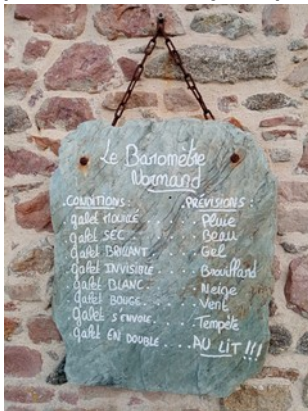 Le Baromètre
Normand
CONDITIONS : PRÉVISIONS :
. galet MOUILLÉ . . . . . Pluie
. galet SEC . . . . . Beau
. galet BRILLANT . . . . Gel
. galet INVISIBLE . . . . Brouillard
. galet BLANC . . . . . Neige
. galet BOUGE . . . . . Vent
. galet S'ENVOLE . . . . Tempête
. galet EN DOUBLE . . . . AU LIT !!!